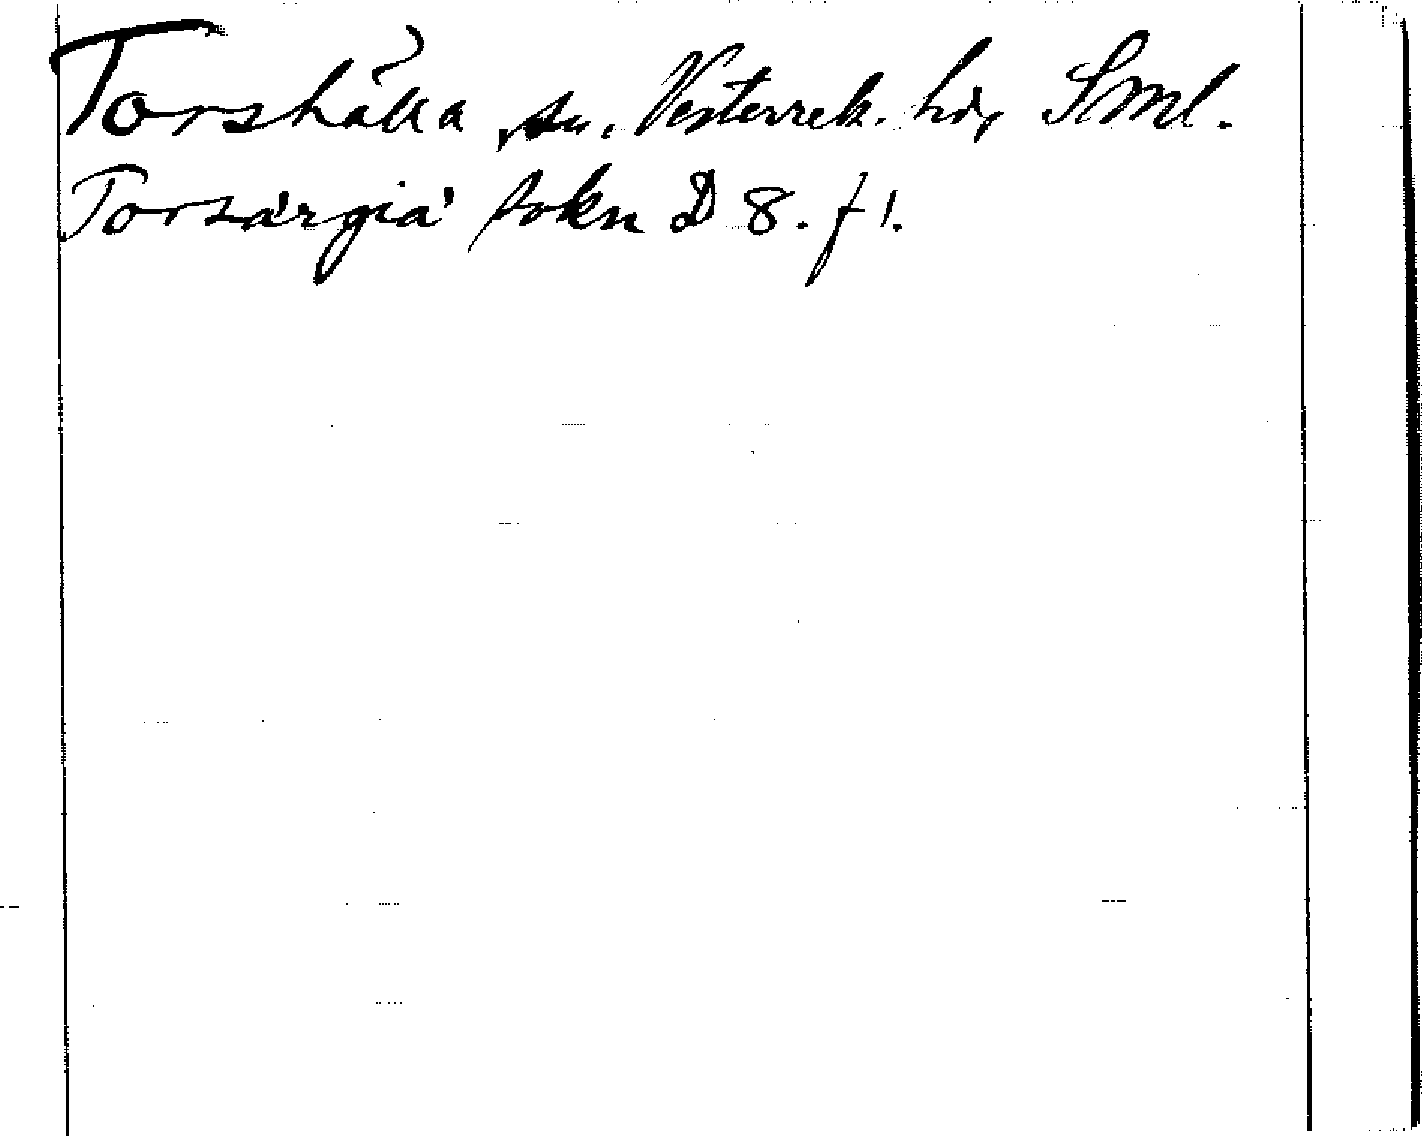 Torshälla sn. Vesterrek. hd, Sml.
Torsärgia sokn D 8. f 1.